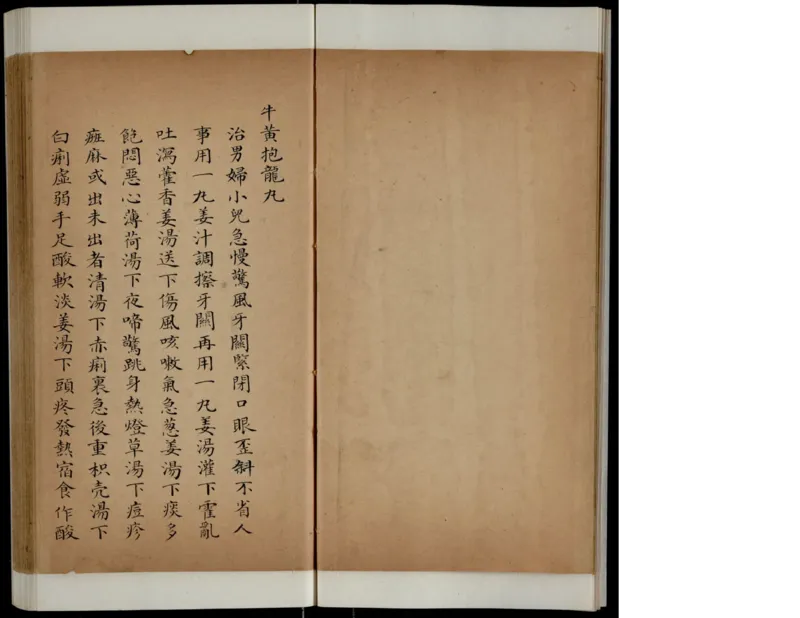 牛黃抱龍丸
治男婦小兒急慢驚風牙關緊閉口眼歪斜不省人
事用一丸姜汁調擦牙關再用一丸姜湯灌下霍亂
吐瀉藿香姜湯送下傷風咳嗽氣急葱姜湯下痰多
飽悶惡心薄荷湯下夜啼驚跳身熱燈草湯下痘疹
痲麻或出未出者清湯下赤痢裏急後重枳壳湯下
白痢虛弱手足酸軟淡姜湯下頭疼發熱宿食作酸